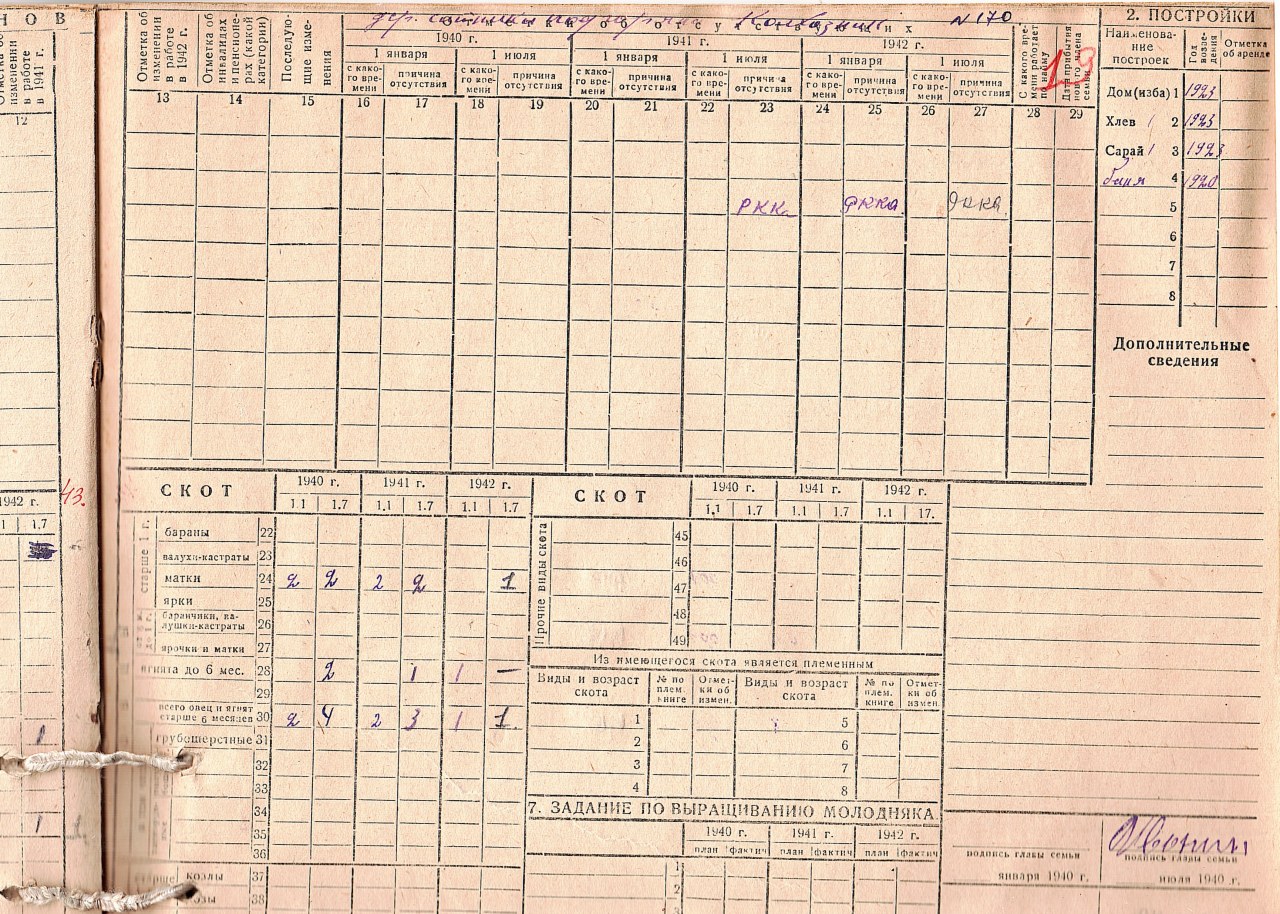 Н О В
№ 170
Отметка об изменении в работе в 1941 г.
12
Отметка об изменении в работе в 1942 г.
Отметка об инвалидах и пенсионерах (какой категории)
Последующие изменения
1940 г.
1941 г.
1942 г.
1 января
1 июля
1 января
1 июля
1 января
1 июля
с какого времени
причина отсутствия
с какого времени
причина отсутствия
с какого времени
причина отсутствия
с какого времени
причина отсутствия
с какого времени
причина отсутствия
с какого времени
причина отсутствия
С какого времени работает по найму
Дата прибытия нового члена семьи
13 14 15 16 17 18 19 20 21 22 23 24 25 26 27 28 29
РККА РККА РККА
2. ПОСТРОЙКИ
Наименование построек
Год возведения
Отметка об аренде
Дом(изба) 1 1923
Хлев 1 2 1923
Сарай 1 3 1923
баня 4 1920
5
6
7
8
Дополнительные
сведения
1942 г.
1.7
43.
СКОТ
1940 г. 1941 г. 1942 г.
1.1 1.7 1.1 1.7 1.1 1.7
старше 1 г.
бараны 22
валухи-кастраты 23
матки 24 2 2 2 2 1
ярки 25
баранчики, валушки-кастраты 26
ярочки и матки 27
ягнята до 6 мес. 28 2 1 1 —
29
всего овец и ягнят старше 6 месяцев 30 2 4 2 3 1 1
грубошерстные 31
32
33
34
35
36
старше
козлы 37
козы 38
1
1
СКОТ
1940 г. 1941 г. 1942 г.
1.1 1.7 1.1 1.7 1.1 17.
Прочие виды скота
45
46
47
48
49
Из имеющегося скота является племенным
Виды и возраст скота
№ по плем. книге
Отметки об измен.
Виды и возраст скота
№ по плем. книге
Отметки об измен.
1 5
2 6
3 7
4 8
7. ЗАДАНИЕ ПО ВЫРАЩИВАНИЮ МОЛОДНЯКА.
1940 г. 1941 г. 1942 г.
план фактич план фактич план фактич
1
2
подпись главы семьи
января 1940 г.
подпись главы семьи
июля 1940 г.